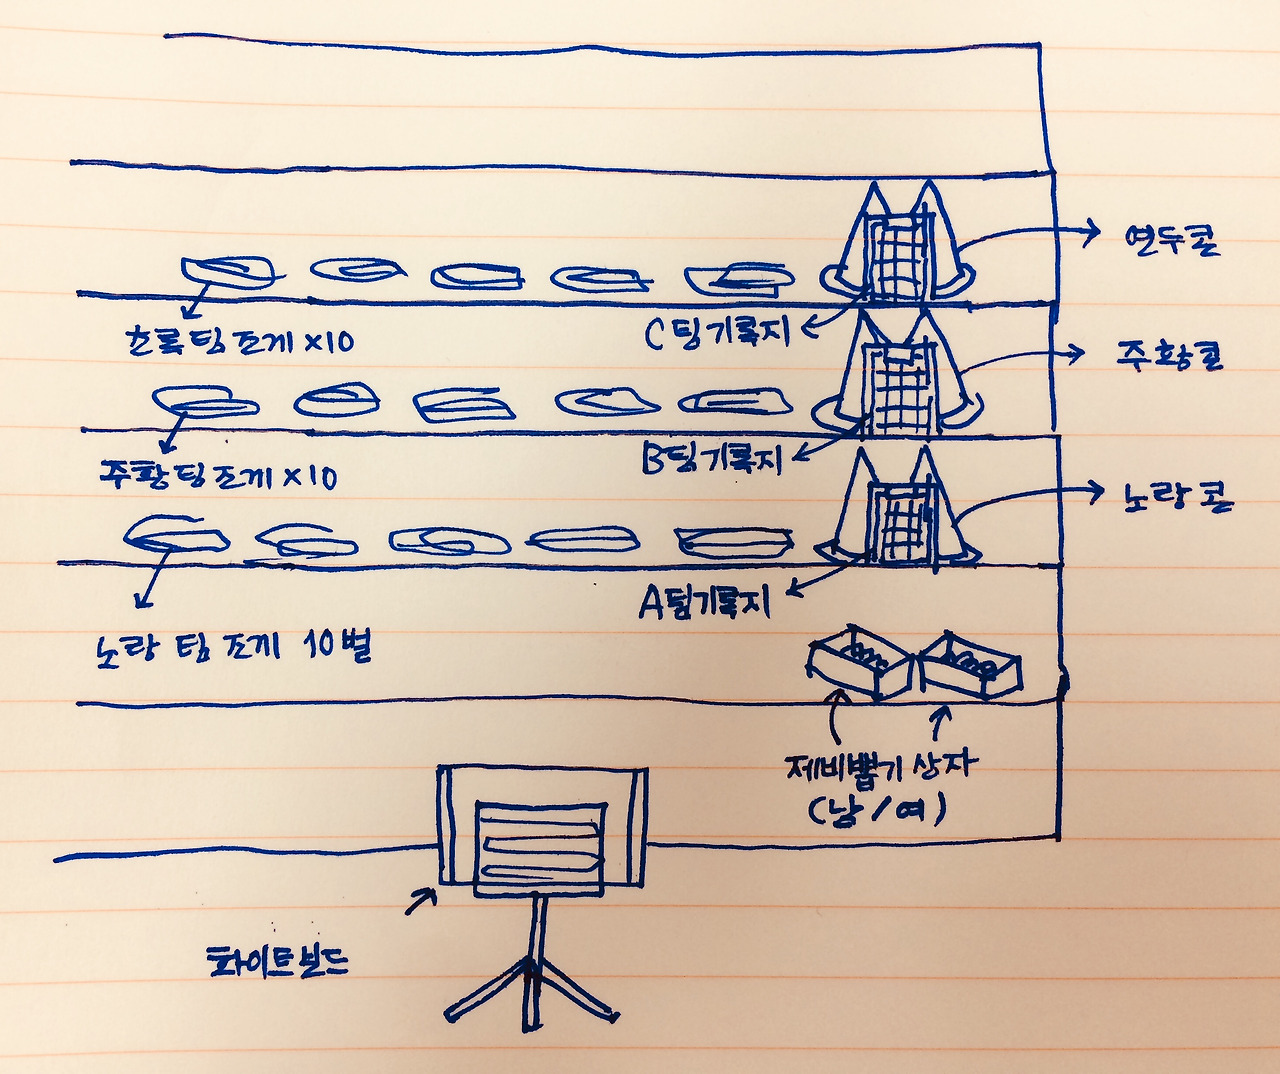 연두콘
C팀기록지
초록팀조끼 ×10
주황콘
B팀기록지
주황팀조끼 ×10
노랑콘
A팀기록지
노랑 팀 조끼 10벌
제비뽑기 상자
(남/여)
화이트보드